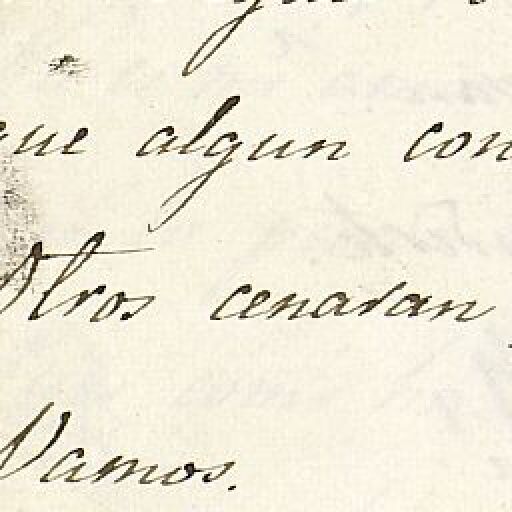 que algun con
Otros cenaran
Vamos.